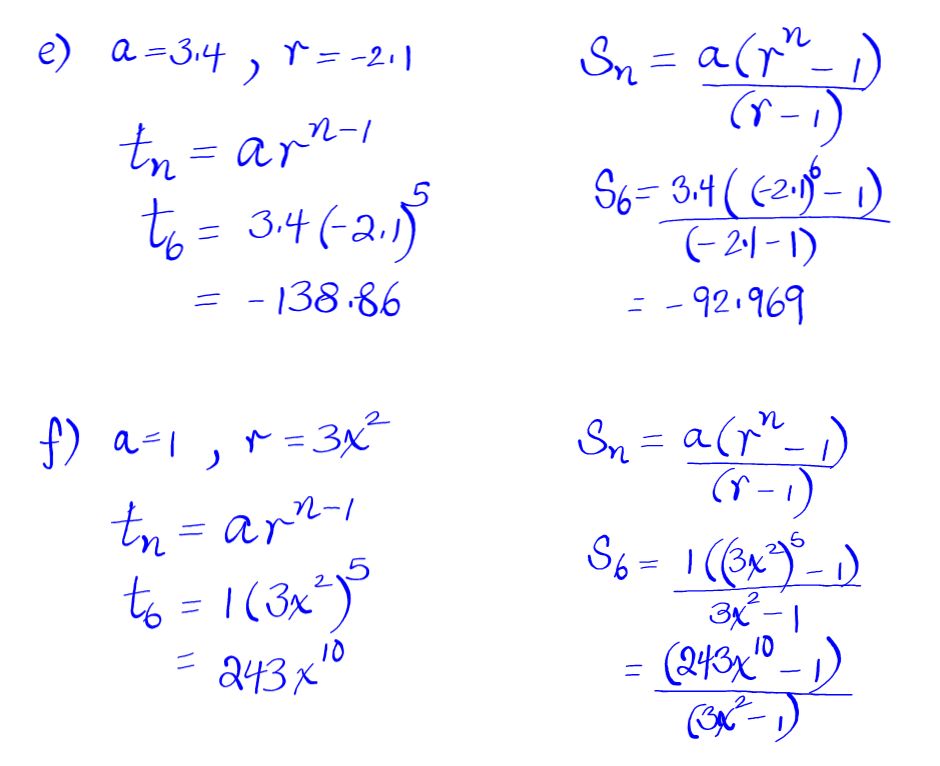 e) a = 3.4 , r = -2.1
tₙ = arⁿ⁻¹
t₆ = 3.4 (-2.1)⁵
= -138.86
Sₙ = a(rⁿ - 1)
(r - 1)
S₆ = 3.4 ( (-2.1)⁶ - 1)
(-2.1 - 1)
= -92.969
f) a = 1 , r = 3x²
tₙ = arⁿ⁻¹
t₆ = 1 (3x²)⁵
= 243x¹⁰
Sₙ = a(rⁿ - 1)
(r - 1)
S₆ = 1((3x²)⁵ - 1)
3x² - 1
= (243x¹⁰ - 1)
(3x² - 1)